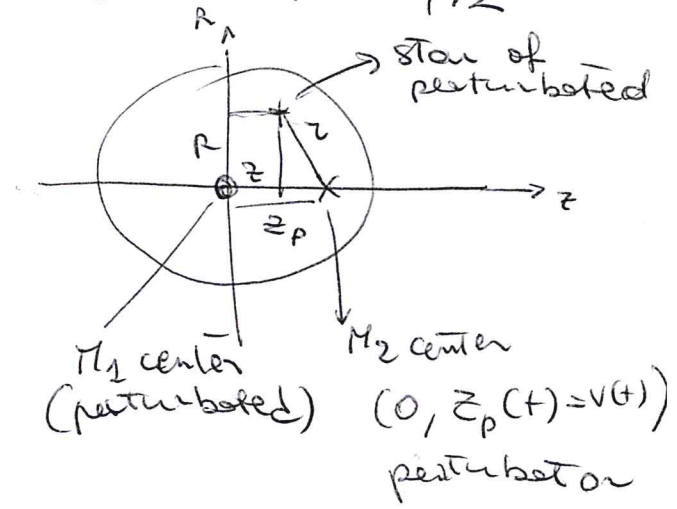 R
star of
perturbated
R
r
z
z
z_p
M_1 center
(perturbated)
M_2 center
(0, z_p(t)=V(t))
perturbator